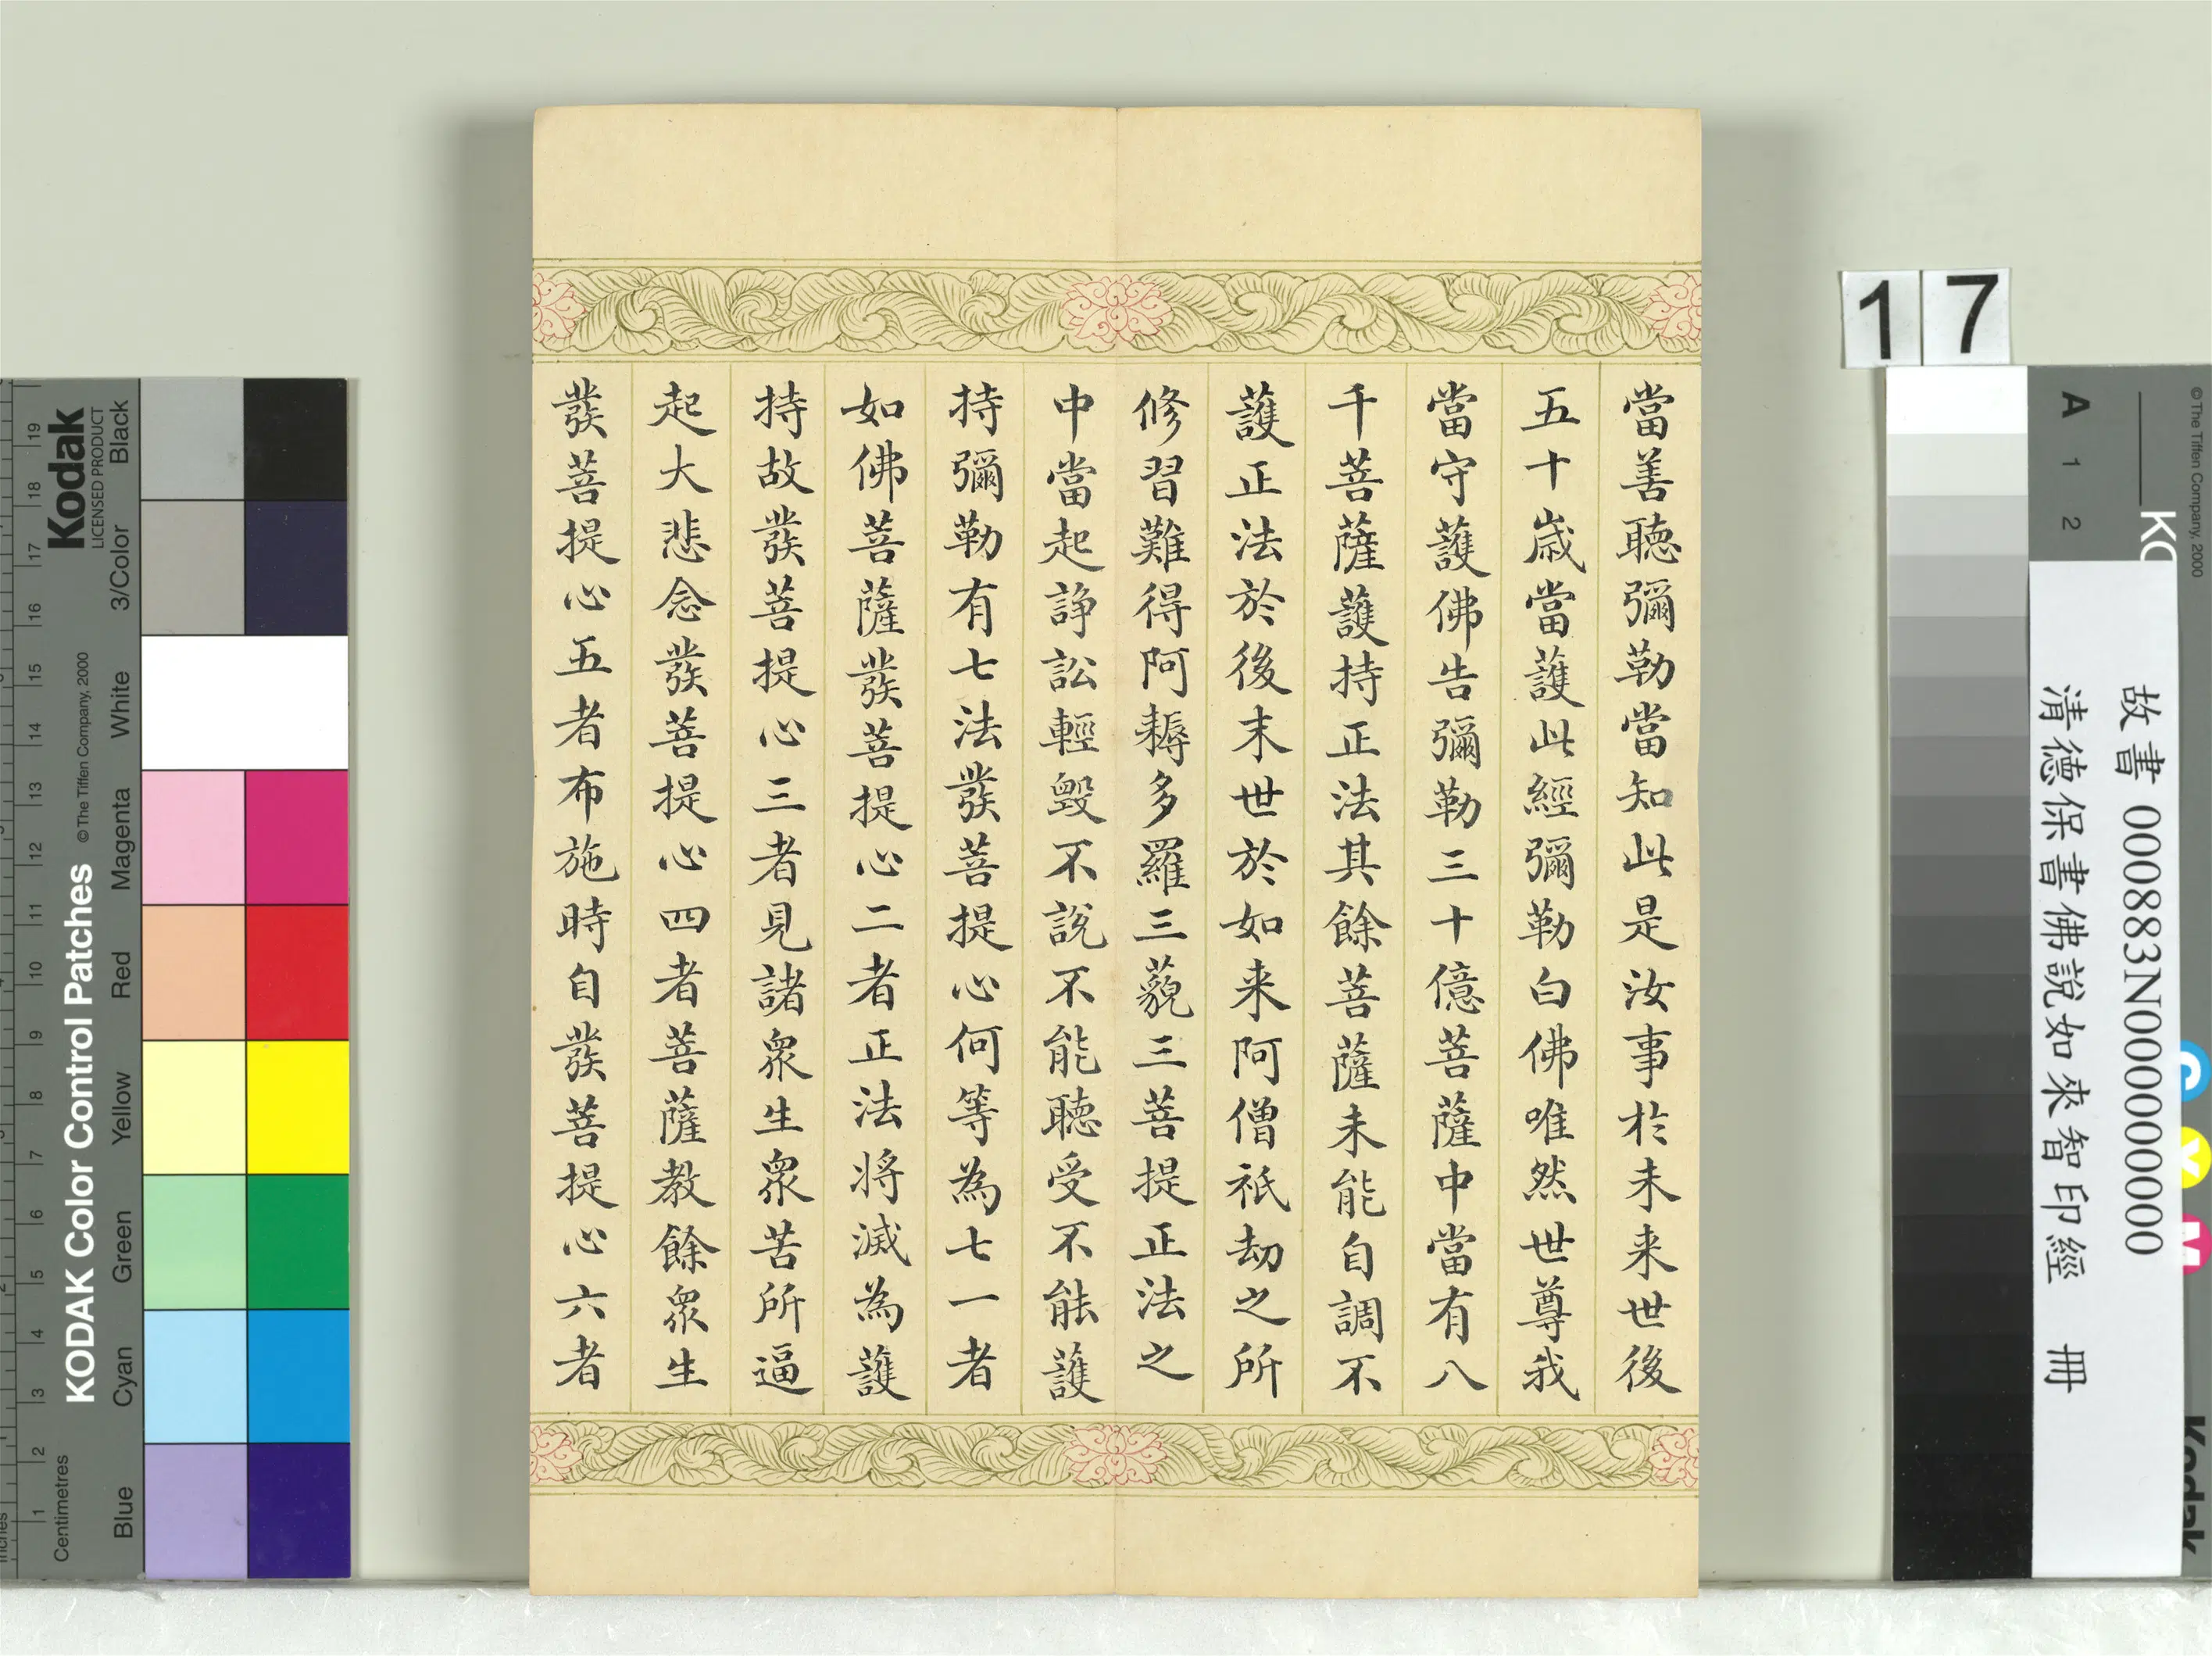 當善聽彌勒當知此是汝事於未来世後
五十歲當護此經彌勒白佛唯然世尊我
當守護佛告彌勒三十億菩薩中當有八
千菩薩護持正法其餘菩薩未能自調不
護正法於後末世於如来阿僧祇劫之所
修習難得阿耨多羅三藐三菩提正法之
中當起諍訟輕毀不說不能聽受不能護
持彌勒有七法發菩提心何等為七一者
如佛菩薩發菩提心二者正法將滅為護
持故發菩提心三者見諸衆生衆苦所逼
起大悲念發菩提心四者菩薩教餘衆生
發菩提心五者布施時自發菩提心六者
17
故書 000883N000000000
清德保書佛說如來智印經 冊
KODAK Color Control Patches
© The Tiffen Company, 2000
Kodak
LICENSED PRODUCT
Centimetres
1 2 3 4 5 6 7 8 9 10 11 12 13 14 15 16 17 18 19
Blue Cyan Green Yellow Red Magenta White 3/Color Black
A 1 2
© The Tiffen Company, 2000
Kodak